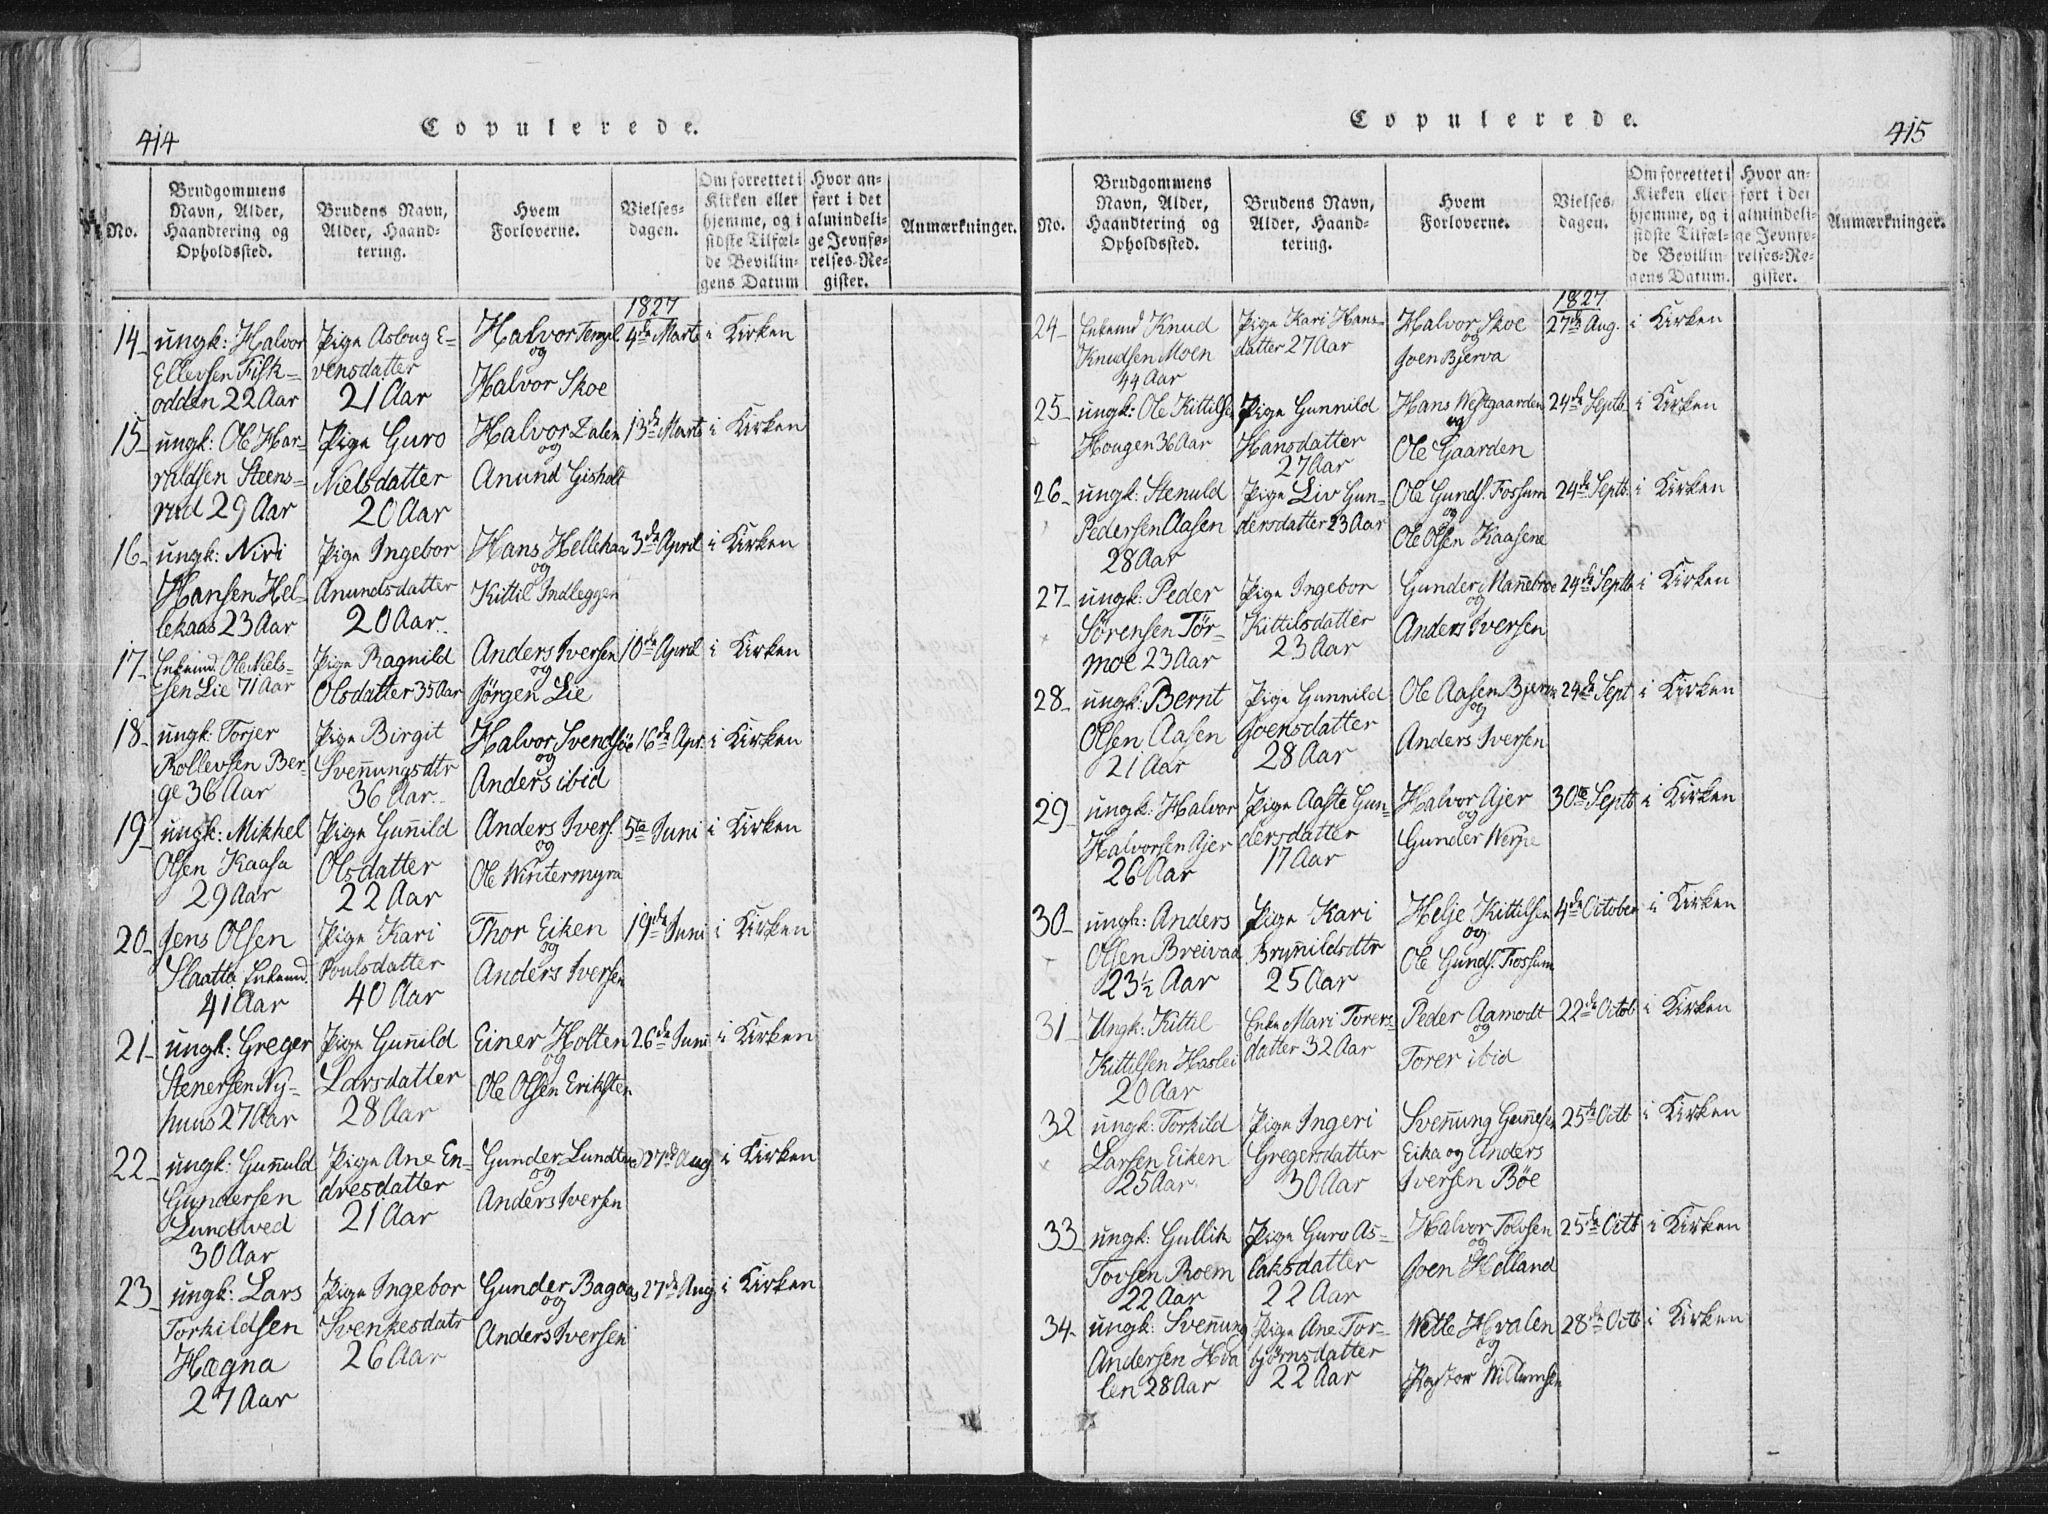 414
Copulerede.
No.
Brudgommens Navn, Alder, Haandtering og Opholdssted.
Brudens Navn, Alder, Haandtering.
Hvem Forloverne.
Vielsesdagen.
Om forrettet i Kirken eller hjemme, og i sidste Tilfælde Bevillingens Datum
Hvor anført i det almindelige Jevnførelses-Register.
Anmærkninger.
1827
14 ungk: Halvor Ellevsen Fiskodden 22 Aar
Pige Asloug Evensdatter 21 Aar
Halvor Templ og Halvor Skoe
4de Marts
i Kirken
15 ungk: Ole Harraldsen Steensrud 29 Aar
Pige Guro Nielsdatter 20 Aar
Halvor og Anund Gisholt
13de Marts
i Kirken
16 ungk: Niri Hansen Hellekaas 23 Aar
Pige Ingebor Anundsdatter 20 Aar
Hans Hellekaa og Kittil Indleggen
3de April
i Kirken
17 Enkemd. Ole Nielssen Lie 71 Aar
Pige Ragnild Olsdatter 35 Aar
Anders Iversen og Jørgen Lie
10de April
i Kirken
18 ungk: Torjer Rollevsen Berge 36 Aar
Pige Birgit Svennungsdtr 36 Aar
Halvor Svendsöe og Anders ibid
16de Apr.
i Kirken
19 ungk: Mikkel Olsen Kaasa 29 Aar
Pige Gunnild Olsdatter 22 Aar
Anders Ivers. og Ole Wintermyra
5te Juni
i Kirken
20 Jens Olsen Slaatta Enkemd. 41 Aar
Pige Kari Poulsdatter 40 Aar
Thor Eiken og Anders Iversen
19de Juni
i Kirken
21 ungk: Greger Stenersen Nyhuus 27 Aar
Pige Gunnild Larsdatter 28 Aar
Einer Holten og Ole Olsen Eriksten
26de Juni
i Kirken
22 ungk: Gunnuld Gundersen Lundtved 30 Aar
Pige Ane Endresdatter 21 Aar
Gunder Lundtved og Anders Iversen
27de Aug
i Kirken
23 ungk: Lars Torkildsen Hægna 27 Aar
Pige Ingebor Svenkesdatr 26 Aar
Gunder Bagaas og Anders Iversen
27de Aug
i Kirken
Copulerede.
415
No.
Brudgommens Navn, Alder, Haandtering og Opholdssted.
Brudens Navn, Alder, Haandtering.
Hvem Forloverne.
Vielsesdagen.
Om forrettet i Kirken eller hjemme, og i sidste Tilfælde Bevillingens Datum.
Hvor anført i det almindelige Jevnførelses-Register.
Anmærkninger.
1827
24 Enkemd Knud Knudsen Moen 44 Aar
Pige Kari Hansdatter 27 Aar
Halvor Skoe og Joen Bjerva
27de Aug.
i Kirken
25 ungk: Ole Kittilse Hougen 36 Aar
Pige Gunnild Hansdatter 27 Aar
Hans Westgaarden og Ole Gaarden
24de Septb
i Kirken
26 ungk: Stenuld Pedersen Aasen 28 Aar
Pige Liv Gundersdatter 23 Aar
Ole Gunds. Fossum og Ole Olsen Kaasene
24de Septb
i Kirken
27 ungk: Peder Sörensen Törmoe 23 Aar
Pige Ingebor Kittilsdatter 23 Aar
Gunder Mannebroe og Anders Iversen
24de Septb
i Kirken
28 ungk: Bernt Olsen Aasen 21 Aar
Pige Gunnild Joensdatter 28 Aar
Ole Aasen og Anders Iversen
24de Sept
i Kirken
29 ungk: Halvor Halvorsen Ajer 26 Aar
Pige Aaste Gundersdatter 17 Aar
Halvor Ajer og Gunder Werpe
30te Septb
i Kirken
30 ungk: Anders Olsen Breivaa 23½ Aar
Pige Kari Brunnildsdtr 25 Aar
Helje Kittilsen og Ole Gunds. Fossum
4de October
i Kirken
31 Ungk: Kittil Kittilsen Haslei 20 Aar
Enke Mari Torersdatter 32 Aar
Peder Aamodt og Torer ibid
22de Octob
i Kirken
32 ungk: Torkild Larsen Eiken 25 Aar
Pige Ingeri Gregersdatter 30 Aar
Svennung Eika og Anders Iversen Böe
25de Octb
i Kirken
33 ungk: Gullik Tovsen Roem 22 Aar
Pige Guro Aslaksdatter 22 Aar
Halvor Tovsen og Joen Helland
25de Octb
i Kirken
34 ungk: Svennung Andersen Hvalen 28 Aar
Pige Ane Torbjörnsdatter 22 Aar
Wetle Hvalen og Pastor Willumsen
28de Octb
i Kirken